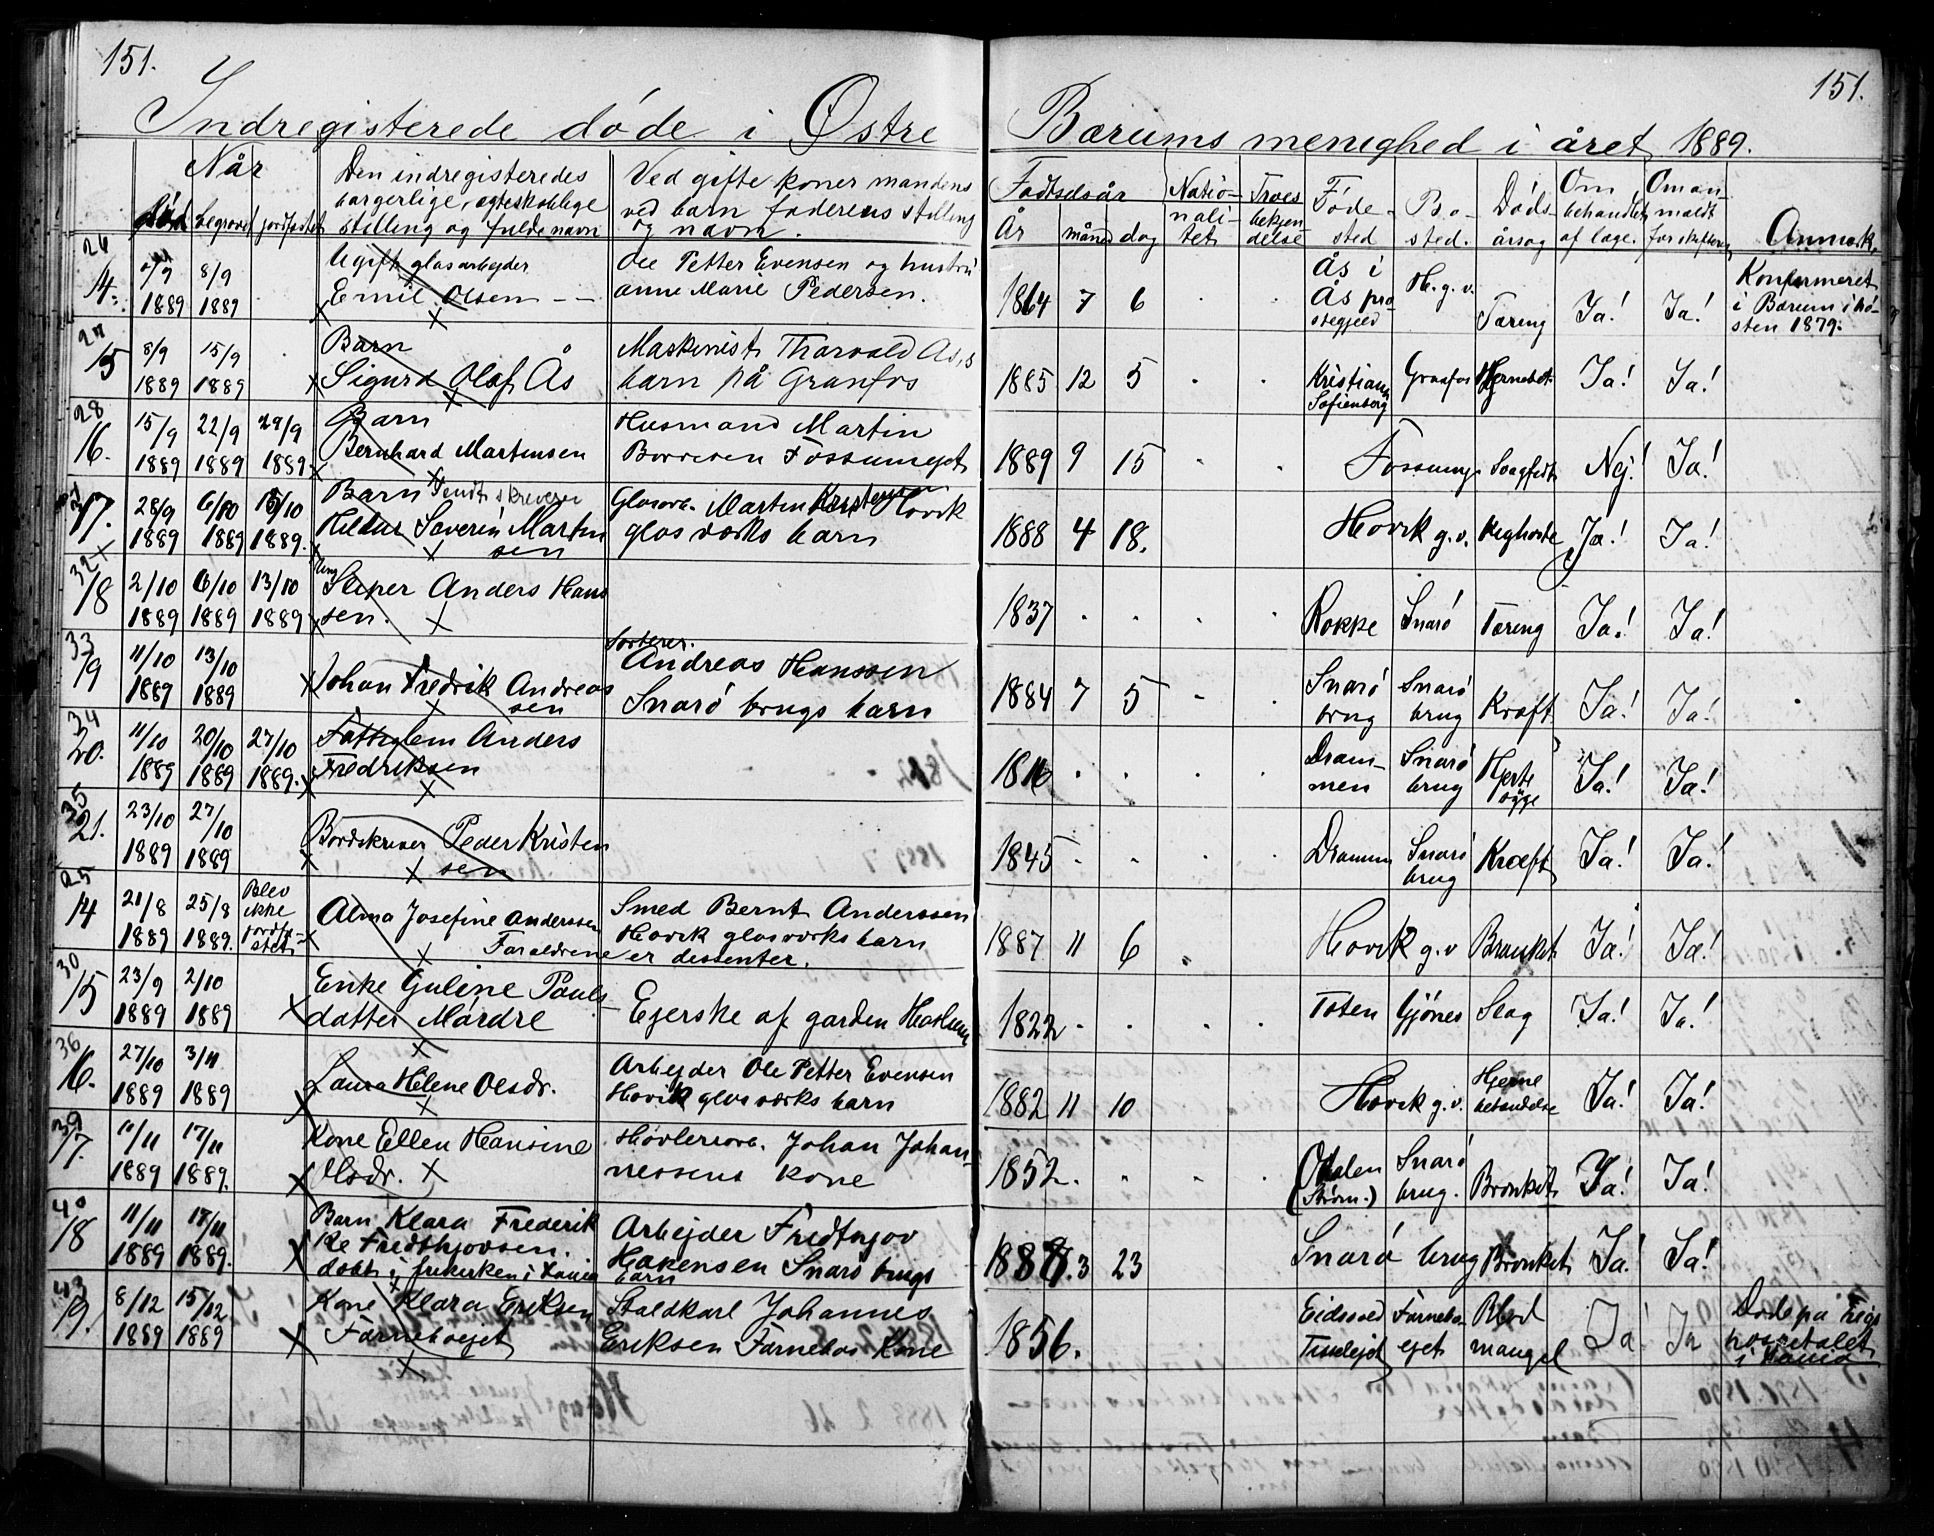 151.
151.
Indregisterede døde i Østre Bærums menighed i året 1889.
Når
død begravet jordfæstet
Den indregisteredes borgerlige, ægteskablige stilling og fulde navn
Ved gifte koner mandens ved barn faderens stilling og navn.
Fødselsår
År måned dag
Natio-nali-tet
Troes bekjen delse
Føde-sted
Bo-sted.
Døds årsag
Om behandlet af læge.
Om an-meldt for skifteret
Anmærk.
26 14. 8/9 1889 1889 Ugift glasarbejder Emil Olsen Ole Petter Evensen og hustru Anne Marie Pedersen. 1864 7 6 Ås i Ås prestegjeld H. g. v. Tæring Ja! Ja! Konfirmeret i Bærum i høsten 1879.
27 15 8/9 1889 15/9 1889 Barn Sigurd Olaf Ås Maskinist Tharvald Ås,s barn på Granfos 1885 12 5 Kristiania Sofienberg Granfos Ja! Ja!
28 16. 15/9 1889 22/9 1889 29/9 1889 Barn Bernhard Martinsen Husmand Martin Fossumejet 1889 9 15 Fossum Nej! Ja!
17. 28/9 1889 6/10 1889 15/10 1889. Barn Severin Martinsen Glasarb. Martin Høvik glasværks barn 1888 4 18. Høvik g. v. Kighoste Ja! Ja!
32 18 2/10 1889 6/10 1889 13/10 1889 Sliper Anders Hanssen. 1837 Rokke Snarø Tæring Ja! Ja!
33 19 11/10 1889 13/10 1889 Johan Fredrik Andreassen Sorterer. Andreas Hanssen Snarø brugs barn 1884 7 5 Snarø brug Snarø brug Kræft Ja! Ja!
34 20. 11/10 1889 20/10 1889 27/10 1889. Fattiglem Anders Fredriksen Drammen Snarø brug Ja! Ja!
35 21. 23/10 1889 27/10 1889 Peder Kristensen 1845 Drammen Snarø brug Kræft Ja! Ja!
25 14 21/8 1889 25/8 1889. Blev ikke jordfæstet Alma Josefine Anderssen Smed Bernt Anderssen Høvik glasværks barn Forældrene er dessenter. 1887 11 6 Høvik g. v Bronkit Ja! Ja!
30 15 23/9 1889 2/10 1889 Enke Guline Pauls-datter Mørdre Ejerske af gården Haslum 1822. Toten Gjønes Slag Ja! Ja!
36 16. 27/10 1889 3/11 1889 Laura Helene Olsdr. Arbejder Ole Petter Evensen Høvik glasværks barn 1882 11 10 Høvik g. v. Hjerne betændelse Ja! Ja!
39 17. 11/11 1889 17/11 1889. Kone Ellen Hansine Olsdr. Høvleriarb. Johan Johan-nessens kone 1852. Odalen (Strøm.) Snarø brug. Bronkit Ja! Ja!
40 18 11/11 1889 1889. Barn Klara Frederikke Fredthjovsen. døbt i frikirken i Arbejder Fredthjov Håkensen Snarø brugs barn 3 23 Snarø brug Bronkit Ja! Ja!
43 19. 8/12 1889 15/12 1889 Kone Klara Eriksen Førneboejet Staldkarl Johannes Eriksen Førnebos Kone 1856. Eidsvold Førnebo-ejet Blod mangel Ja Ja Døde på Rigs hospitalet i